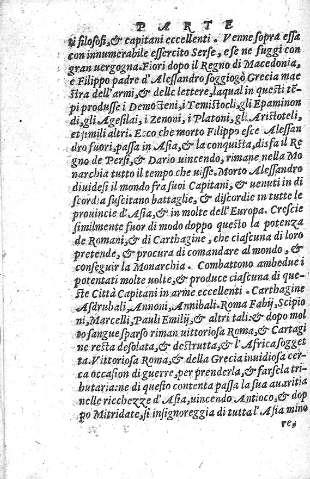 PARTE
ti filosofi, & capitani eccellenti. Venne sopra essa
con innumerabile essercito Serse, e se ne fuggi con
gran uergogna. Fiori dopo il Regno di Macedonia,
e Filippo padre d'Alessandro soggiogò Grecia mae
stra dell'armi, & delle lettere, laqual in questi tē
pi produsse i Demosteni, i Temistocli, gli Epaminon
di, gli Agesilai, i Zenoni, i Platoni, gli Aristoteli,
et simili altri. Ecco che morto Filippo esce Alessan
dro fuori, passa in Asia, & la conquista, disfa il Re
gno de Persi, & Dario uincendo, rimane nella Mo
narchia tutto il tempo che uisse. Morto Alessandro
diuidesi il mondo fra suoi Capitani, & uenuti in di
scordia suscitano battaglie, & discordie in tutte le
prouincie d'Asia, & in molte dell'Europa. Crescie
similmente fuor di modo doppo questo la potenza
de Romani, & di Carthagine, che ciascuna di loro
pretende, & procura di comandare al mondo, &
conseguir la Monarchia. Combattono ambedue i
potentati molte uolte, & produce ciascuna di que-
ste Città Capitani in arme eccellenti. Carthagine
Asdrubali, Annoni, Annibali. Roma Fabij, Scipio
ni, Marcelli, Pauli Emilij, & altri tali: & dopo mol
to sangue sparso riman uittoriosa Roma, & Cartagi
ne resta desolata, & destrutta, & l'Africa sogget
ta. Vittoriosa Roma, & della Grecia inuidiosa cer-
ca occasion di guerre, per prenderla, & farsela tri-
butaria: ne di questo contenta passa la sua auaritia
nelle ricchezze d'Asia, uincendo Antioco, & dop
po Mitridate, si insignoreggia di tutta l'Asia mino
re,